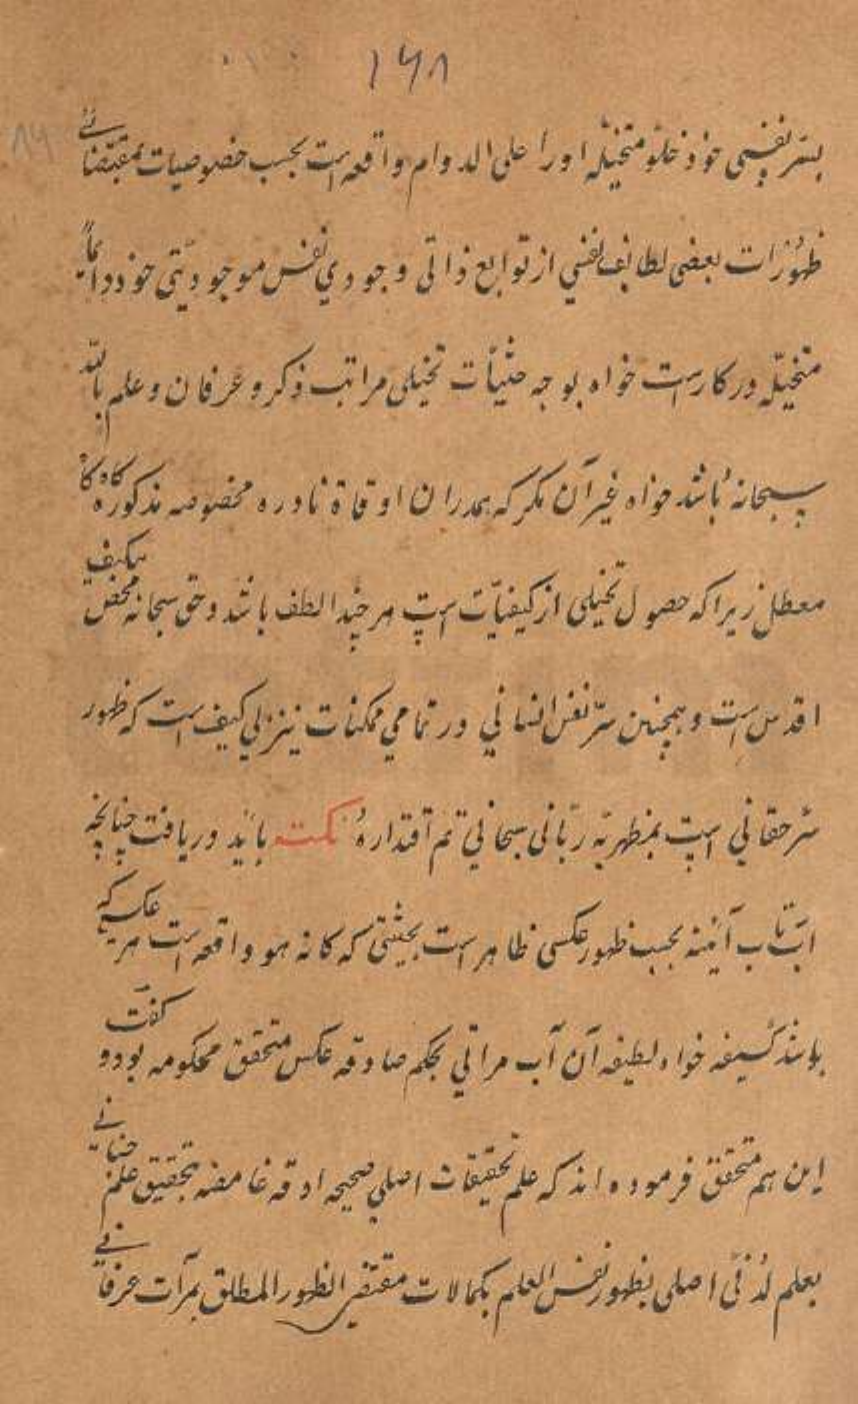 ۱۶۸
بسّر نفسی خود خلو متخیلّه او را علی الدوام واقعه است بحسب خصوصیات بمقتضائے
ظهورات بعضی لطایف نفسی از توابع ذاتی وجودی نفس موجودیتی خود دایماً
متخیلّه در کار است خواه بوجه حثیّات تخیلی مراتب ذکر و عرفان و علم باللّه
سبحانهٗ باشد خواه غیر آن مگر که همدران اوقاة نادره مخصوصه مذکوره گاه گا
معطل زیرا که حصول تخیلی از کیفیّات است هر چند الطف باشد و حق سبحانه محض بیکیف
اقدس است و همچنین سرّ نفس انسانی در تمامی ممکنات نیز بی کیف است که ظهور
سّر حقانی است بمظهریّه ربّانی سبحانی تم اقتداره نکته باید دریافت چنانچه
آب تاب آئینه بحسب ظهور عکسی ظاهر است بحیثیتی که کانه هو واقعه است هر عکسیکه
باشد کسیفه خواه لطیفه آن آب مراتی بحکم صادقه عکس متحقق محکومه بود و گفت
این هم متحقق فرموده اند که علم تحقیقات اصلی صحیحه ادقه غامضه بتحقیق علم
بعلم لدُنّی اصلی بظهور نفس العلم بکمالات مقتضی الظهور المطلق بمرآت عرفانے